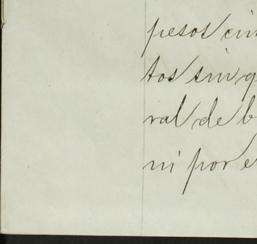 pesos cin
tos sin q
ral de b
ni por e